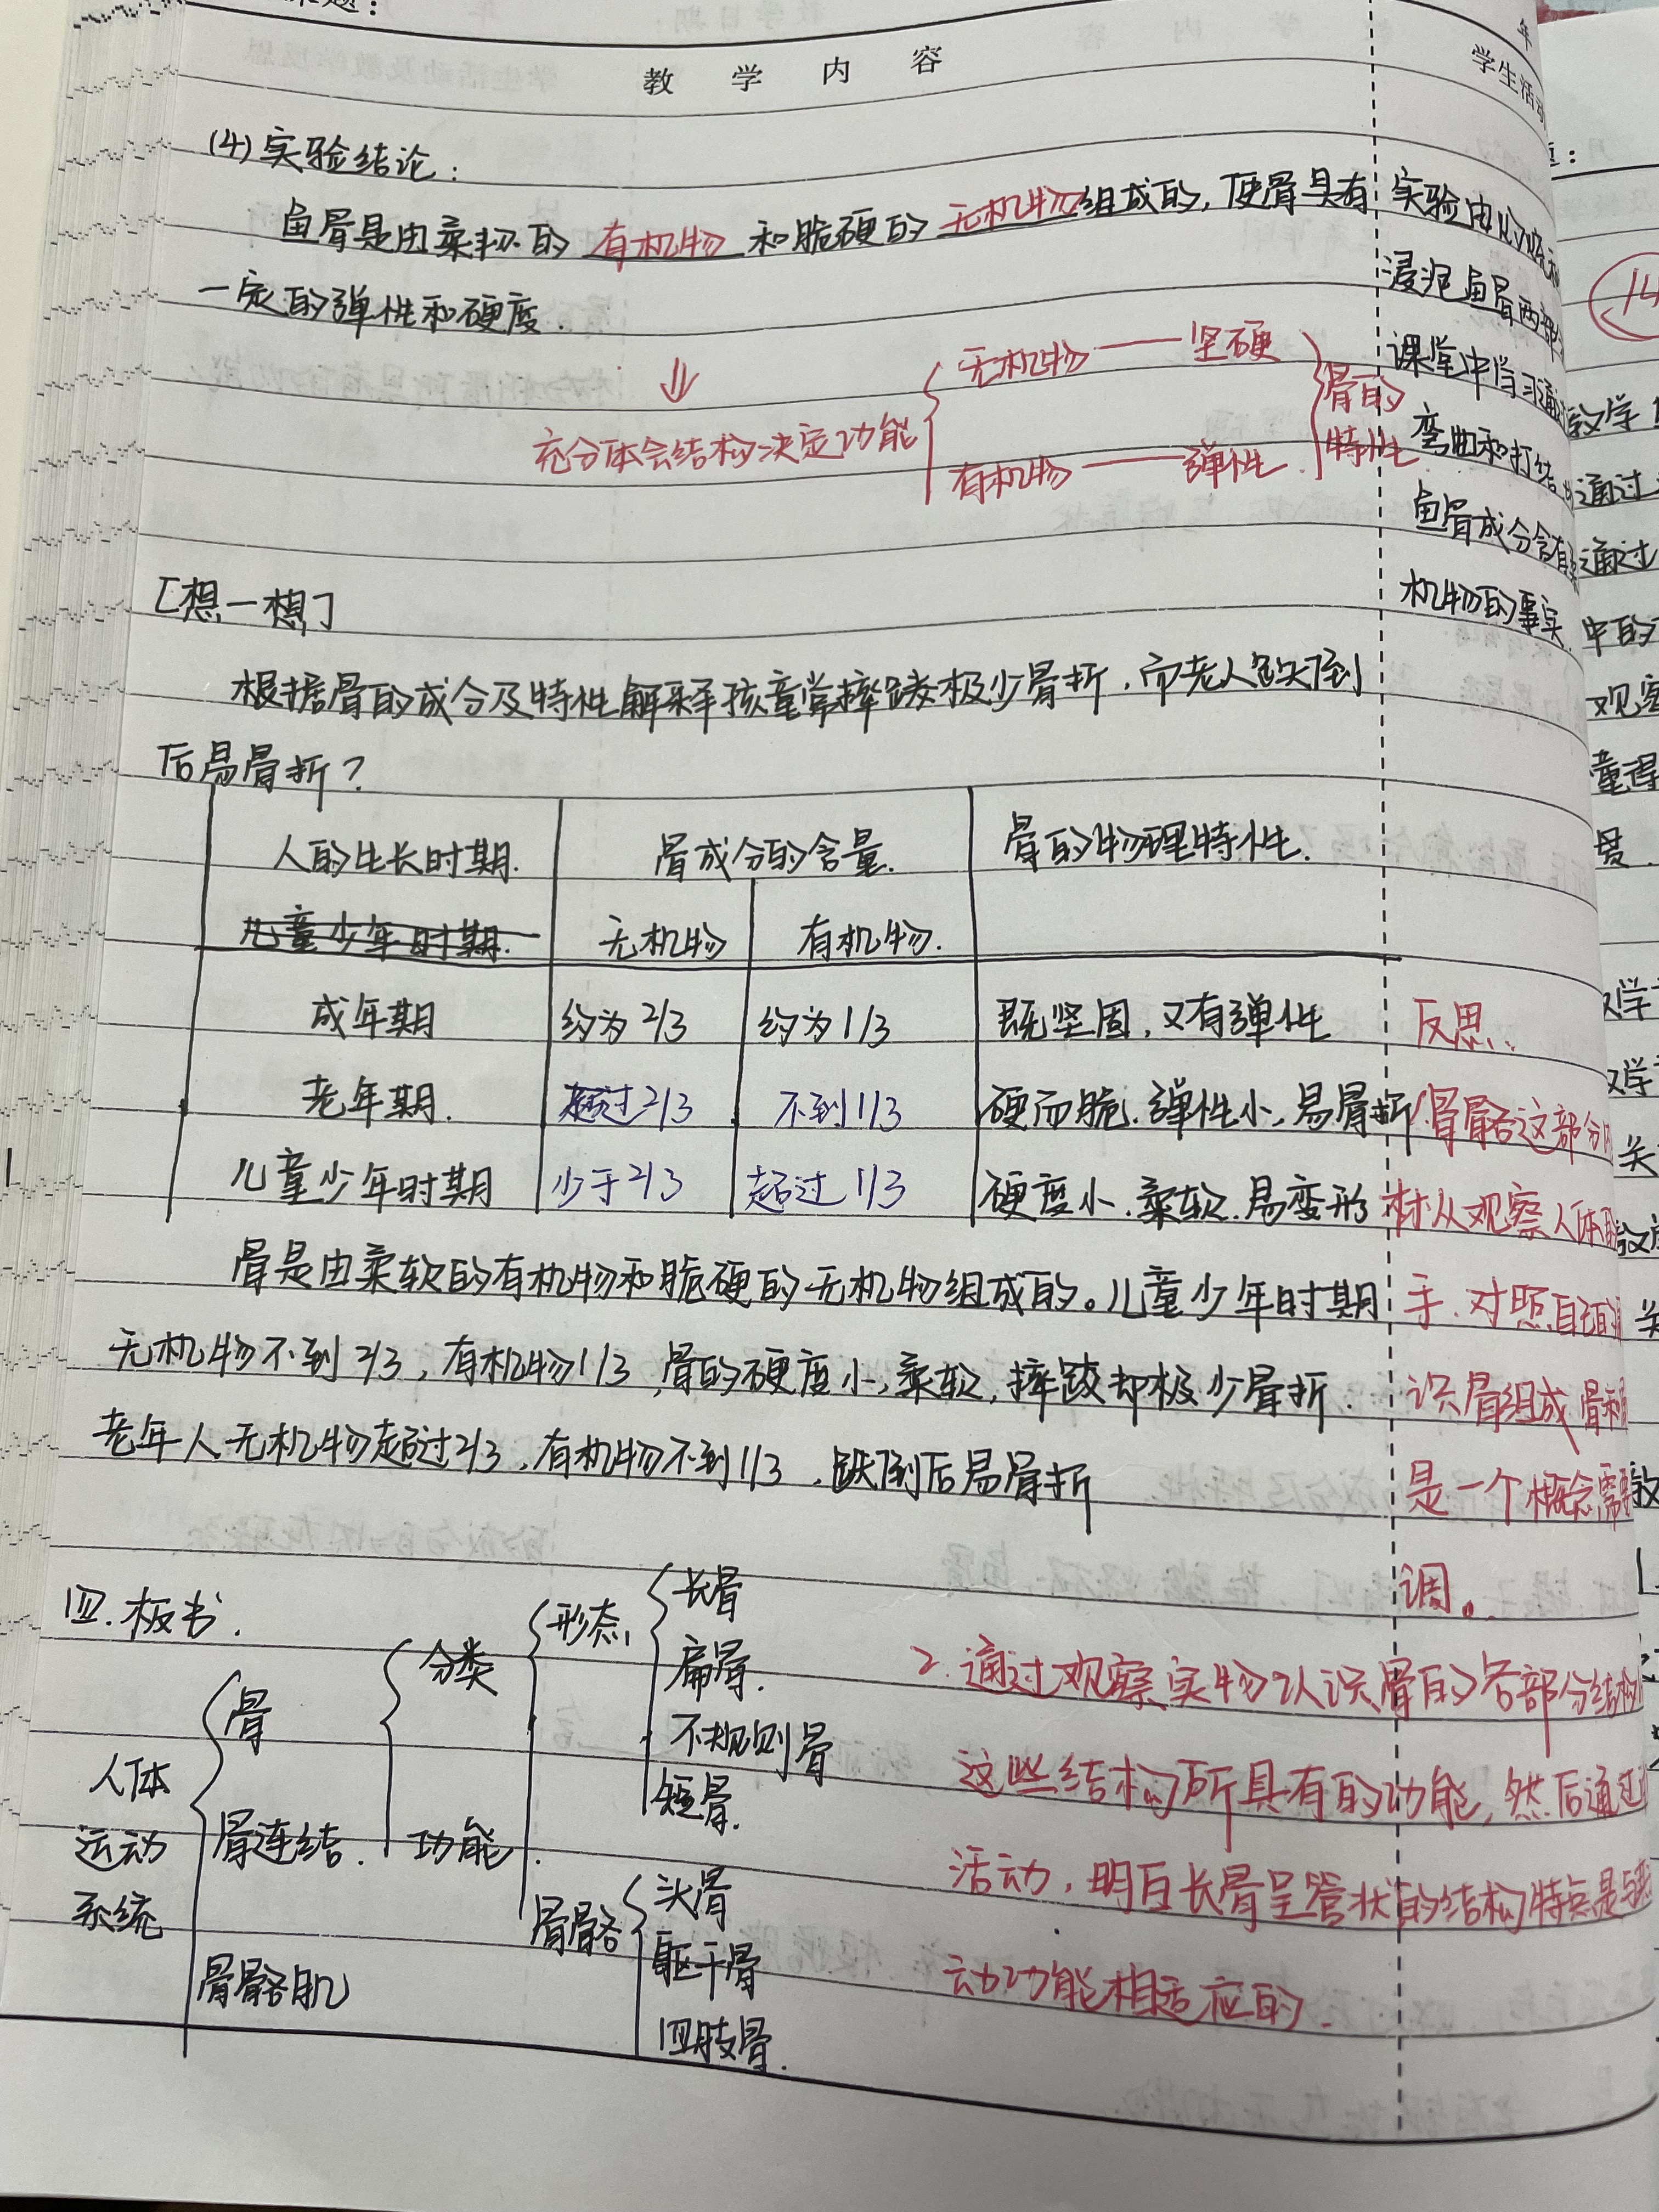 教 学 内 容
学生活
(4)实验结论:
鱼骨是由柔韧的 有机物 和脆硬的 无机物组成的,使骨具有
一定的弹性和硬度.
⇓
充分体会结构决定功能
无机物——坚硬
有机物——弹性.
骨的
特性
实验由
浸泡鱼骨两部
课堂中学习通
弯曲和打结.
鱼骨成分含有
机物的事实.
[想一想]
根据骨的成分及特性解释孩童常摔跤极少骨折,而老人跌倒
后易骨折?
人的生长时期. 骨成分的含量. 骨的物理特性.
儿童少年时期. 无机物 有机物.
成年期 约为2/3 约为1/3 既坚固,又有弹性
老年期. 超过2/3 不到1/3 硬而脆.弹性小,易骨折
儿童少年时期 少于2/3 超过1/3 硬度小.柔软.易变形
骨是由柔软的有机物和脆硬的无机物组成的。儿童少年时期
无机物不到2/3,有机物1/3,骨的硬度小,柔软,摔跤却极少骨折.
老年人无机物超过2/3,有机物不到1/3,跌倒后易骨折
反思.
骨骼这部分
材从观察人体
手.对照自己的
识骨组成骨和
是一个概念需要
调。
四.板书.
人体
运动
系统
骨
骨连结.
骨骼肌
分类
功能.
形态
骨骼
长骨
扁骨.
不规则骨
短骨.
头骨
躯干骨
四肢骨.
2.通过观察实物认识骨的各部分结构
这些结构所具有的功能,然后通过
活动,明白长骨呈管状的结构特点是与
动功能相适应的.
14
教学
通过
通过
中的
观察
童得
度.